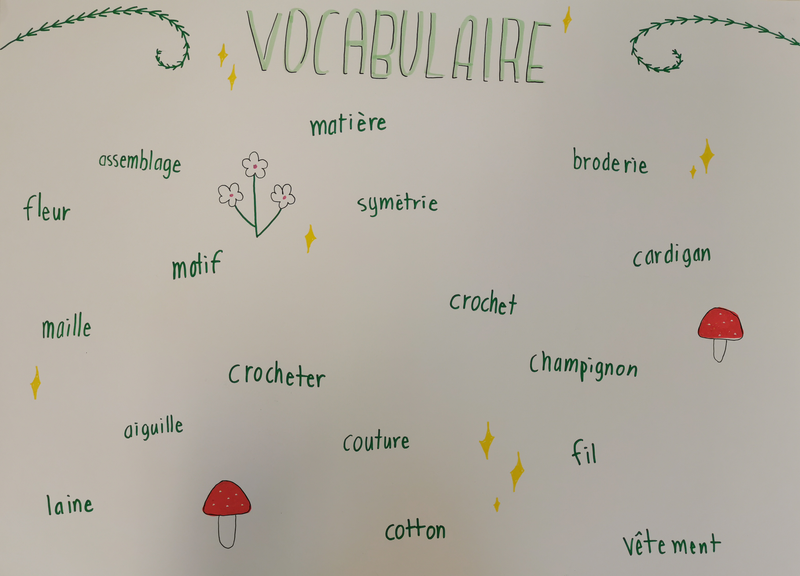 VOCABULAIRE
matière
assemblage
broderie
fleur
symétrie
motif
cardigan
crochet
maille
crocheter
champignon
aiguille
couture
fil
laine
cotton
vêtement